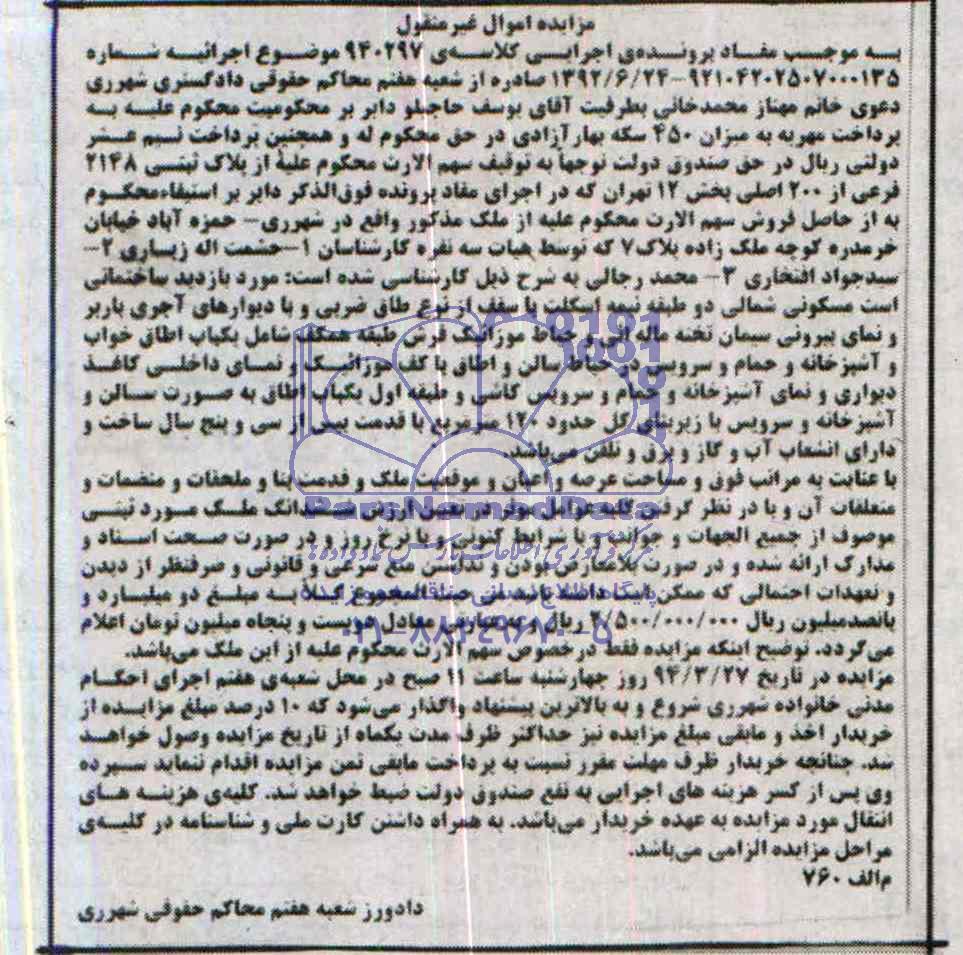 مزایده اموال غیرمنقول
به موجب مفاد پرونده‌ی اجرایی کلاسه‌ی ۹۴۰۲۹۷ موضوع اجرائیه شماره
۹۲۱۰۴۲۰۲۵۰۷۰۰۰۱۳۵-۱۳۹۲/۶/۲۴ صادره از شعبه هفتم محاکم حقوقی دادگستری شهرری
دعوی خانم مهناز محمدخانی بطرفیت آقای یوسف حاجیلو دایر بر محکومیت محکوم علیه به
پرداخت مهریه به میزان ۴۵۰ سکه بهارآزادی در حق محکوم له و همچنین پرداخت نیم عشر
دولتی ریال در حق صندوق دولت توجهاً به توقیف سهم الارث محکوم علیه از پلاک ثبتی ۲۱۴۸
فرعی از ۲۰۰ اصلی بخش ۱۲ تهران که در اجرای مفاد پرونده فوق‌الذکر دایر بر استیفاءمحکوم
به از حاصل فروش سهم الارث محکوم علیه از ملک مذکور واقع در شهرری- حمزه آباد خیابان
خرمدره کوچه ملک زاده پلاک۷ که توسط هیات سه نفره کارشناسان ۱-حشمت اله زیساری ۲-
سیدجواد افتخاری ۳- محمد رجالی به شرح ذیل کارشناسی شده است: مورد بازدید ساختمانی
است مسکونی شمالی دو طبقه نیمه اسکلت با سقف از نوع طاق ضربی و با دیوارهای آجری باربر
و نمای بیرونی سیمان تخته ماله ای و حیاط موزائیک فرش طبقه همکف شامل یکباب اطاق خواب
و آشپزخانه و حمام و سرویس در حیاط سالن و اطاق با کف موزائیک و نمای داخلی کاغذ
دیواری و نمای آشپزخانه و حمام و سرویس کاشی و طبقه اول یکباب اطاق به صورت سالن و
آشپزخانه و سرویس با زیربنای کل حدود ۱۲۰ مترمربع با قدمت بیش از سی و پنج سال ساخت و
دارای انشعاب آب و گاز و برق و تلفن می‌باشد.
با عنایت به مراتب فوق و مساحت عرصه و اعیان و موقعیت ملک و قدمت بنا و ملحقات و منضمات و
متعلقات آن و با در نظر گرفتن کلیه عوامل موثر در تعیین ارزش ششدانگ ملک مورد ثبتی
موصوف از جمیع الجهات و جوانب و با شرایط کنونی و با نرخ روز و در صورت صحت اسناد و
مدارک ارائه شده و در صورت بلامعارض بودن و نداشتن منع شرعی و قانونی و صرفنظر از دیدن
و تعهدات احتمالی که ممکن است داشته باشد من حیث المجموع کلاً به مبلغ دو میلیارد و
پانصدمیلیون ریال ۲/۵۰۰/۰۰۰/۰۰۰ ریال و به عبارتی معادل دویست و پنجاه میلیون تومان اعلام
می‌گردد. توضیح اینکه مزایده فقط درخصوص سهم الارث محکوم علیه از این ملک می‌باشد.
مزایده در تاریخ ۹۴/۳/۲۷ روز چهارشنبه ساعت ۱۱ صبح در محل شعبه‌ی هفتم اجرای احکام
مدنی خانواده شهرری شروع و به بالاترین پیشنهاد واگذار می‌شود که ۱۰ درصد مبلغ مزایده از
خریدار اخذ و مابقی مبلغ مزایده نیز حداکثر ظرف مدت یکماه از تاریخ مزایده وصول خواهد
شد. چنانچه خریدار ظرف مهلت مقرر نسبت به پرداخت مابقی ثمن مزایده اقدام ننماید سپرده
وی پس از کسر هزینه های اجرایی به نفع صندوق دولت ضبط خواهد شد. کلیه‌ی هزینه های
انتقال مورد مزایده به عهده خریدار می‌باشد. به همراه داشتن کارت ملی و شناسنامه در کلیه‌ی
مراحل مزایده الزامی می‌باشد.
م‌الف ۷۶۰
دادورز شعبه هفتم محاکم حقوقی شهرری
ParsNamadData
مرکز فرآوری اطلاعات پارس نماد داده‌ها
پایگاه اطلاع رسانی مناقصه و مزایده
۰۲۱-۸۸۳۴۹۶۷۰-۵